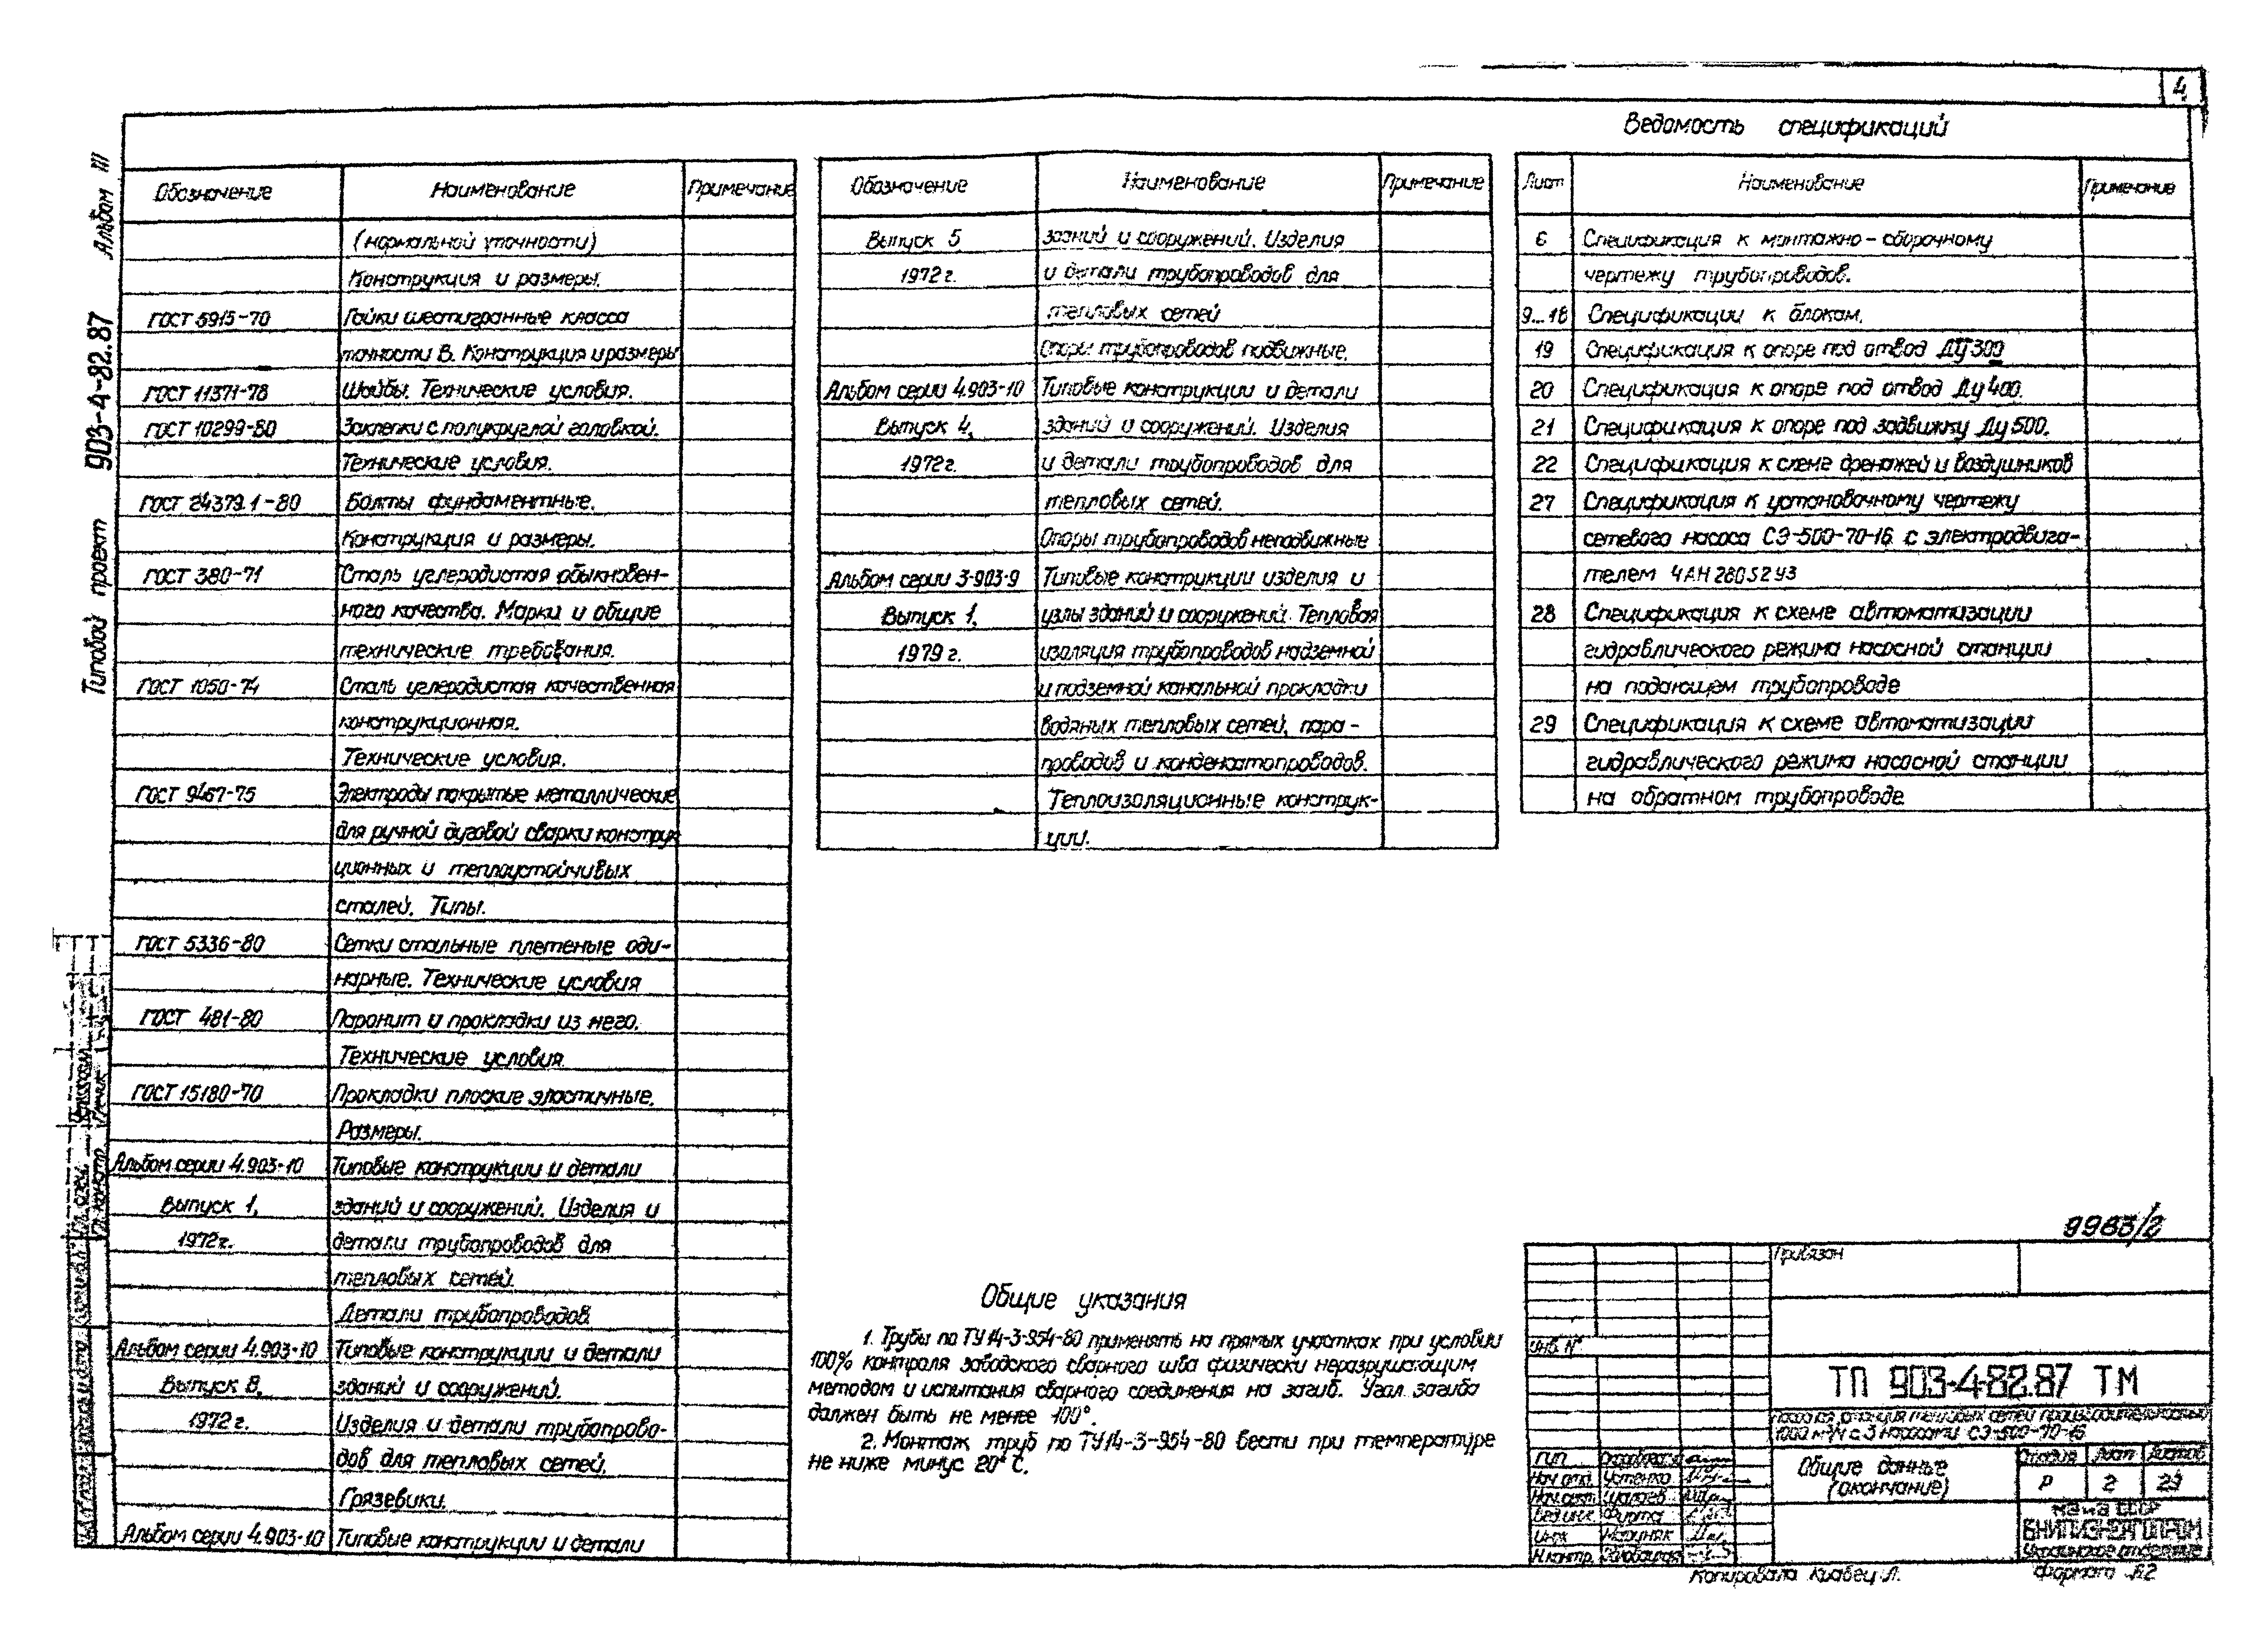 4
Альбом III
903-4-82.87
Типовой проект
Обозначение Наименование Примечание
(нормальной точности)
Конструкция и размеры.
ГОСТ 5915-70 Гайки шестигранные класса
точности В. Конструкция и размеры
ГОСТ 11371-78 Шайбы. Технические условия.
ГОСТ 10299-80 Заклепки с полукруглой головкой.
Технические условия.
ГОСТ 24379.1-80 Болты фундаментные.
Конструкция и размеры.
ГОСТ 380-71 Сталь углеродистая обыкновен-
ного качества. Марки и общие
технические требования.
ГОСТ 1050-74 Сталь углеродистая качественная
конструкционная.
Технические условия.
ГОСТ 9467-75 Электроды покрытые металлические
для ручной дуговой сварки конструк
ционных и теплоустойчивых
сталей. Типы.
ГОСТ 5336-80 Сетки стальные плетеные оди-
нарные. Технические условия
ГОСТ 481-80 Паронит и прокладки из него.
Технические условия.
ГОСТ 15180-70 Прокладки плоские эластичные.
Размеры.
Альбом серии 4.903-10 Типовые конструкции и детали
Выпуск 1, зданий и сооружений. Изделия и
1972г. детали трубопроводов для
тепловых сетей.
Детали трубопроводов.
Альбом серии 4.903-10 Типовые конструкции и детали
Выпуск 8, зданий и сооружений.
1972г. Изделия и детали трубопрово-
дов для тепловых сетей.
Грязевики.
Альбом серии 4.903-10 Типовые конструкции и детали
Обозначение Наименование Примечание
Выпуск 5 зданий и сооружений. Изделия
1972г. и детали трубопроводов для
тепловых сетей
Опоры трубопроводов подвижные.
Альбом серии 4.903-10 Типовые конструкции и детали
Выпуск 4, зданий и сооружений. Изделия
1972г. и детали трубопроводов для
тепловых сетей.
Опоры трубопроводов неподвижные
Альбом серии 3-903-9 Типовые конструкции изделия и
Выпуск 1, узлы зданий и сооружений. Тепловая
1979 г. изоляция трубопроводов надземной
и подземной канальной прокладки
водяных тепловых сетей, паро-
проводов и конденсатопроводов.
Теплоизоляционные конструк-
ции.
Ведомость спецификаций
Лист Наименование Примечание
6 Спецификация к монтажно-сборочному
чертежу трубопроводов.
9...18 Спецификации к блокам.
19 Спецификация к опоре под отвод Ду300
20 Спецификация к опоре под отвод Ду400.
21 Спецификация к опоре под задвижку Ду500.
22 Спецификация к схеме дренажей и воздушников
27 Спецификация к установочному чертежу
сетевого насоса СЭ-500-70-16 с электродвига-
телем 4АН280S2У3
28 Спецификация к схеме автоматизации
гидравлического режима насосной станции
на подающем трубопроводе
29 Спецификация к схеме автоматизации
гидравлического режима насосной станции
на обратном трубопроводе
Общие указания
1. Трубы по ТУ14-3-954-80 применять на прямых участках при условии
100% контроля заводского сварного шва физически неразрушающим
методом и испытания сварного соединения на загиб. Угол загиба
должен быть не менее 100°.
2. Монтаж труб по ТУ14-3-954-80 вести при температуре
не ниже минус 20°С.
9983/2
Привязан
Инв. №
ТП 903-4-82.87 ТМ
Насосная станция тепловых сетей производительностью
1000 м³/ч с 3 насосами СЭ-500-70-16
ГИП
Нач. отд. Устенко
Вед. инж. Фирта
Инж. Маруняк
Н.контр.
Общие данные
(окончание)
Стадия Лист Листов
Р 2 29
ВНИПИЭНЕРГОПРОМ
Украинское отделение
Копировала Кравец Л. Формат А2